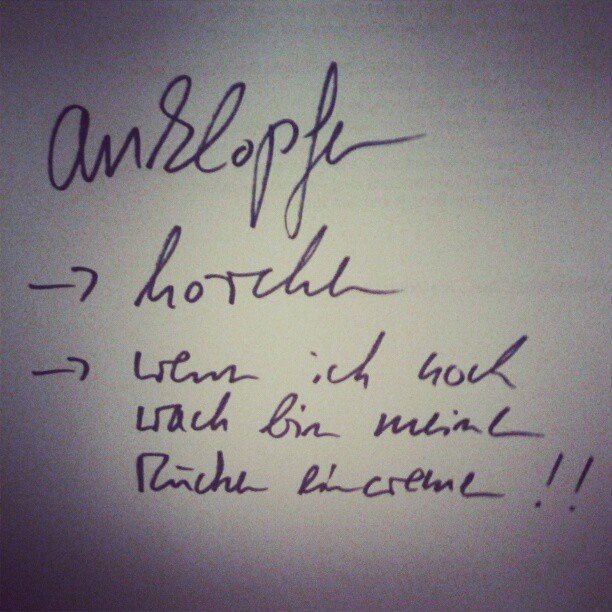 anklopfen
→ horchen
→ wenn ich noch
wach bin meinen
Rücken eincremen !!